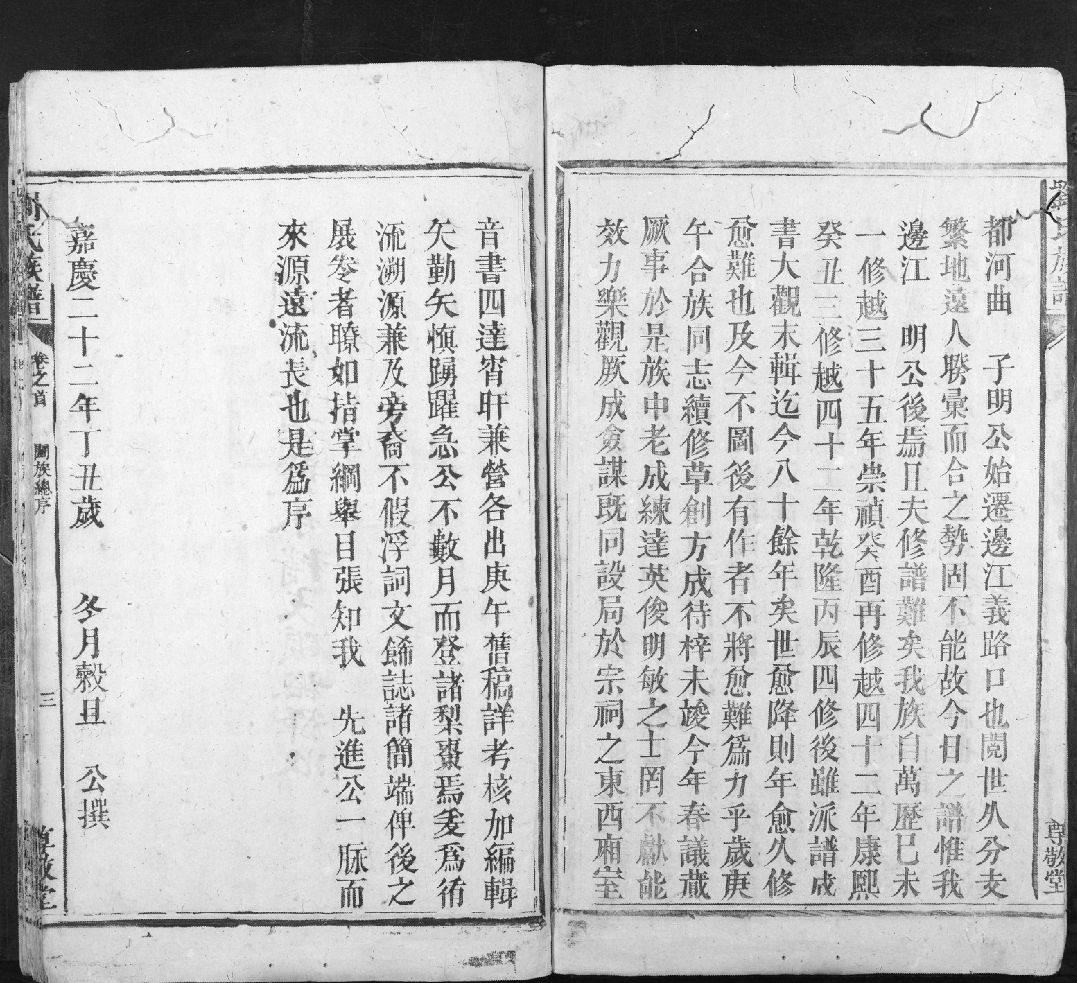 都河曲　子明公始遷邊江義路口也閱世久分支
繁地遠人睽彙而合之勢固不能故今日之譜惟我
邊江　明公後焉且夫修譜難矣我族自萬歷巳未
一修越三十五年崇禎癸酉再修越四十二年康熙
癸丑三修越四十二年乾隆丙辰四修後雖派譜成
書大觀未輯迄今八十餘年矣世愈降則年愈久修
愈難也及今不圖後有作者不將愈難爲力乎歲庚
午合族同志續修草創方成待梓未竣今年春議蕆
厥事於是族中老成練達英俊明敏之士罔不獻能
效力樂觀厥成僉謀既同設局於宗祠之東西廂室
尊敬堂
音書四達宵旰兼營各出庚午舊稿詳考核加編輯
矢勤矢愼踴躍急公不數月而登諸梨棗焉爰爲循
流溯源兼及旁裔不假浮詞文餙誌諸簡端俾後之
展劵者瞭如指掌綱舉目張知我　先進公一脉而
來源遠流長也是爲序
嘉慶二十二年丁丑歲　冬月穀旦　公撰
氏族譜
卷之首
闔族總序
三
尊敬堂